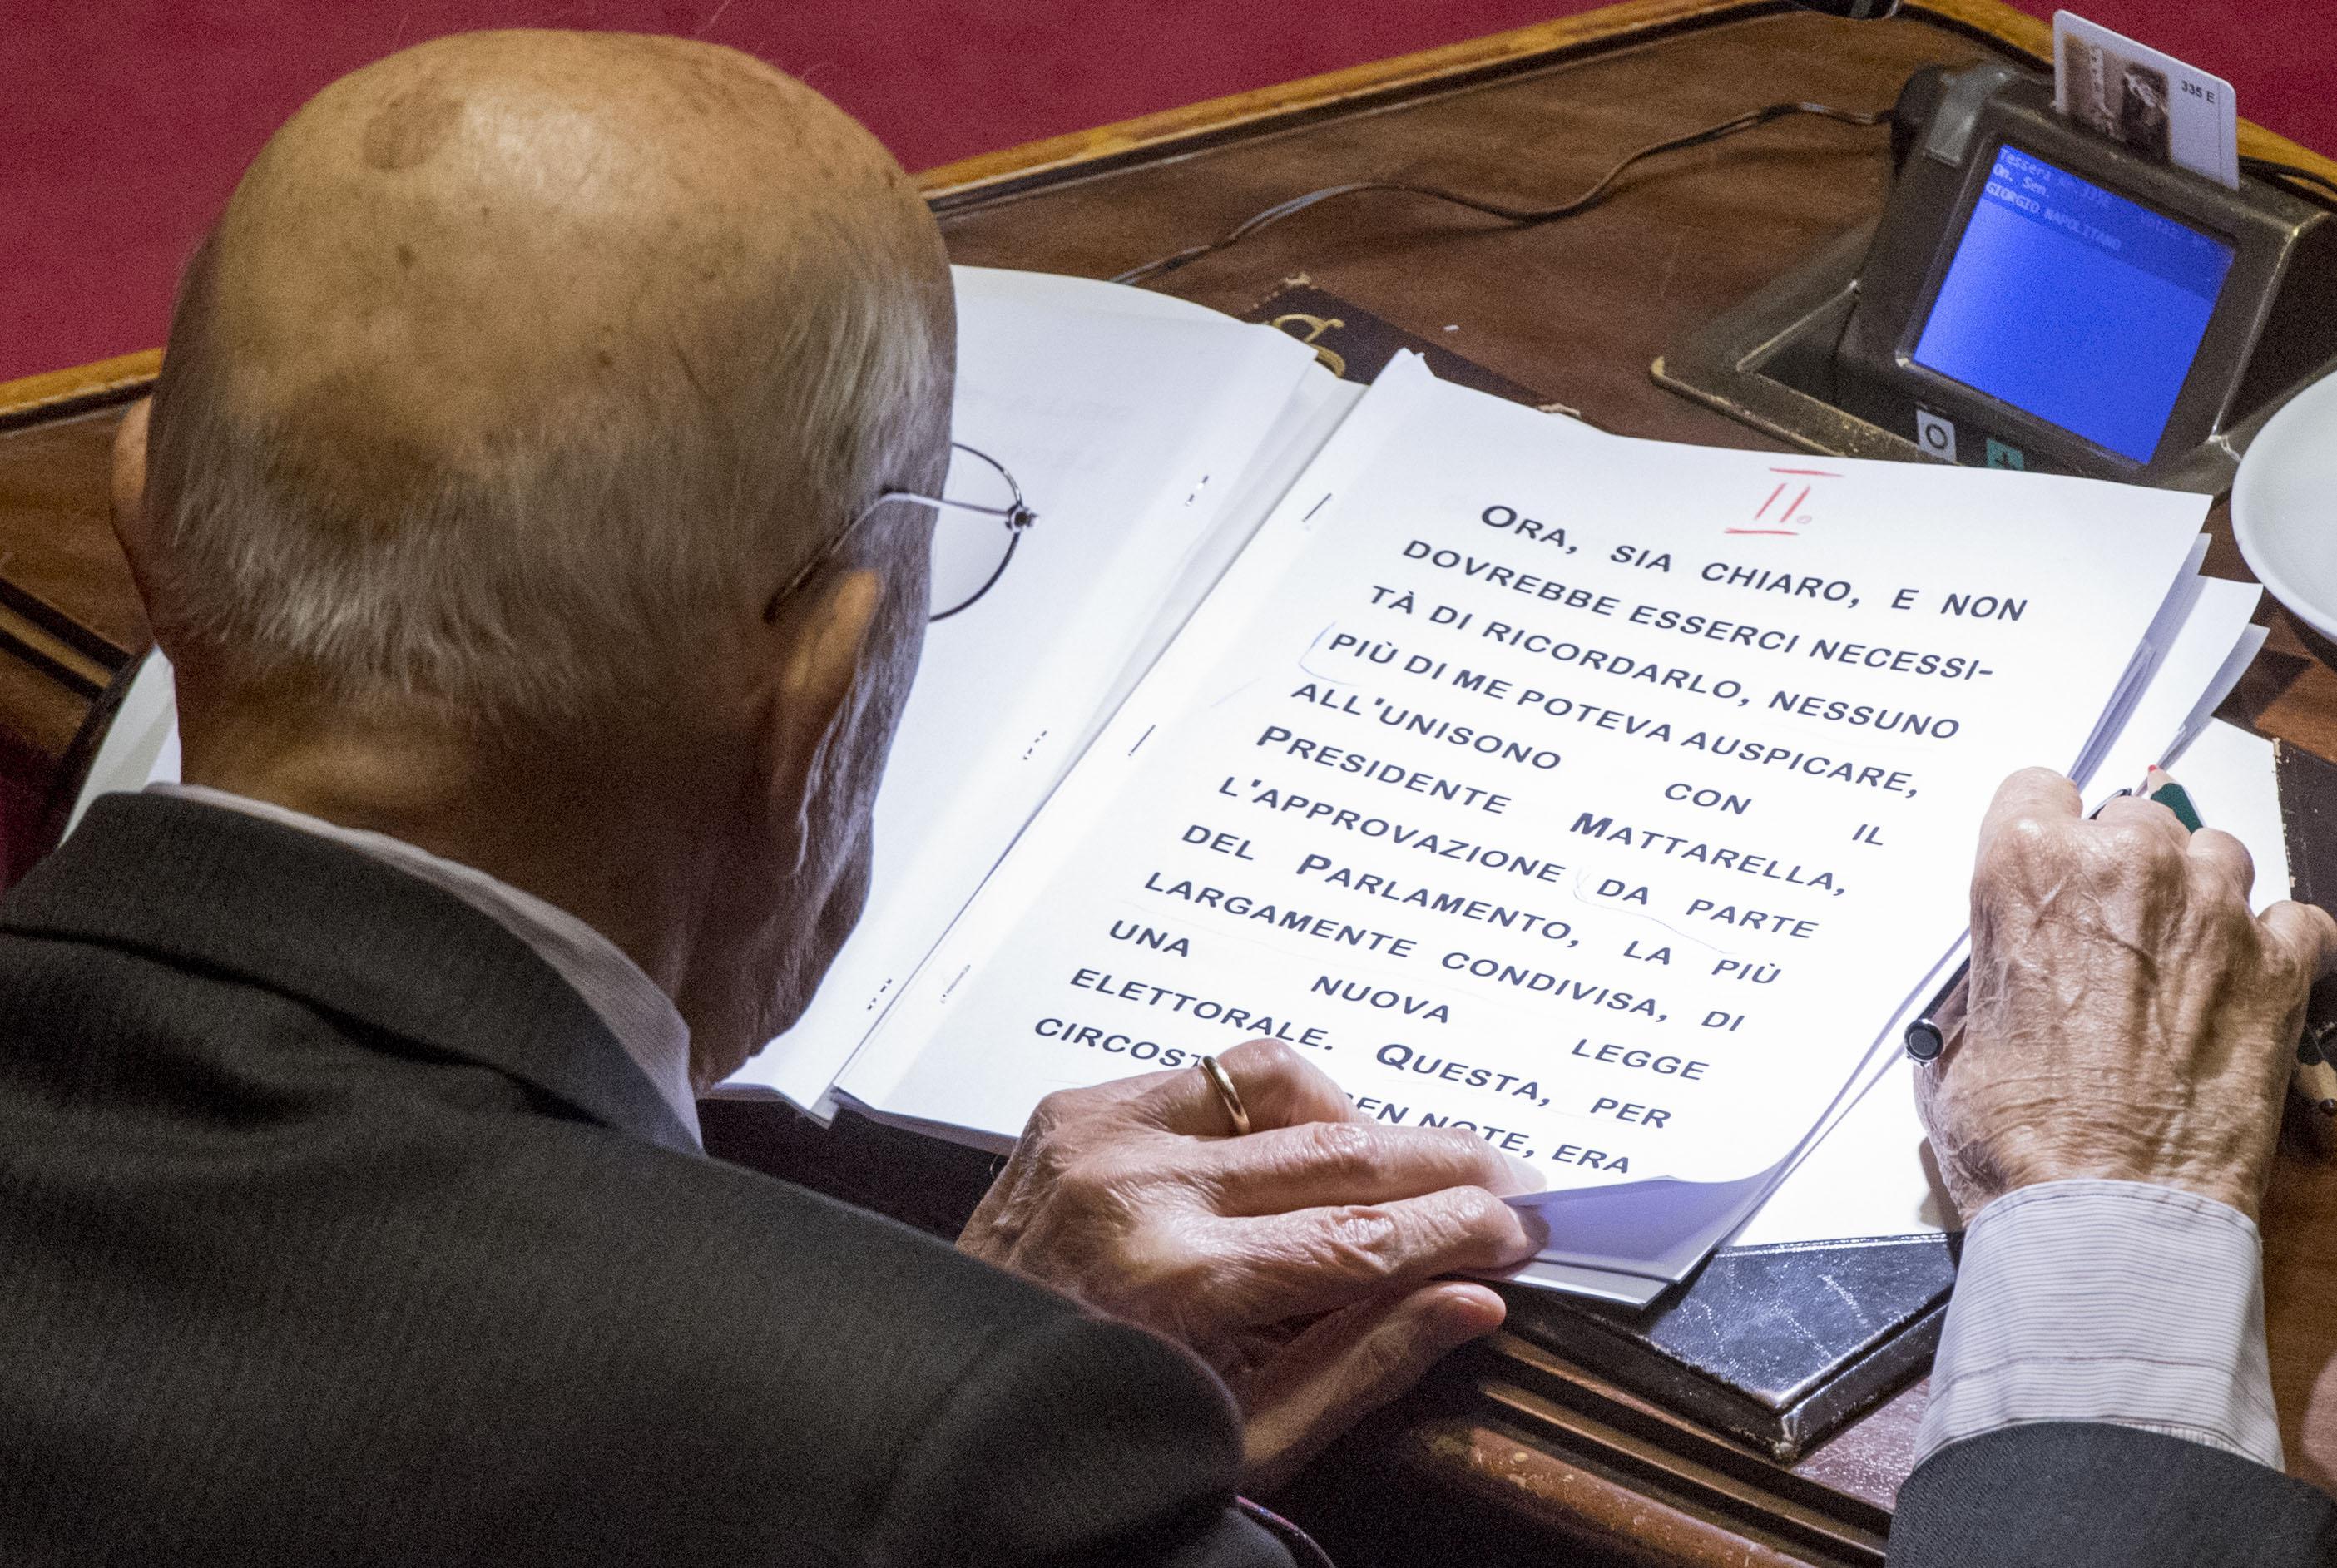 335 E
Tessera n° 335E
On. Sen.
GIORGIO NAPOLITANO
II.
ORA, SIA CHIARO, E NON
DOVREBBE ESSERCI NECESSI-
TÀ DI RICORDARLO, NESSUNO
PIÙ DI ME POTEVA AUSPICARE,
ALL'UNISONO CON IL
PRESIDENTE MATTARELLA,
L'APPROVAZIONE DA PARTE
DEL PARLAMENTO, LA PIÙ
LARGAMENTE CONDIVISA, DI
UNA NUOVA LEGGE
ELETTORALE. QUESTA, PER
NOTE, ERA